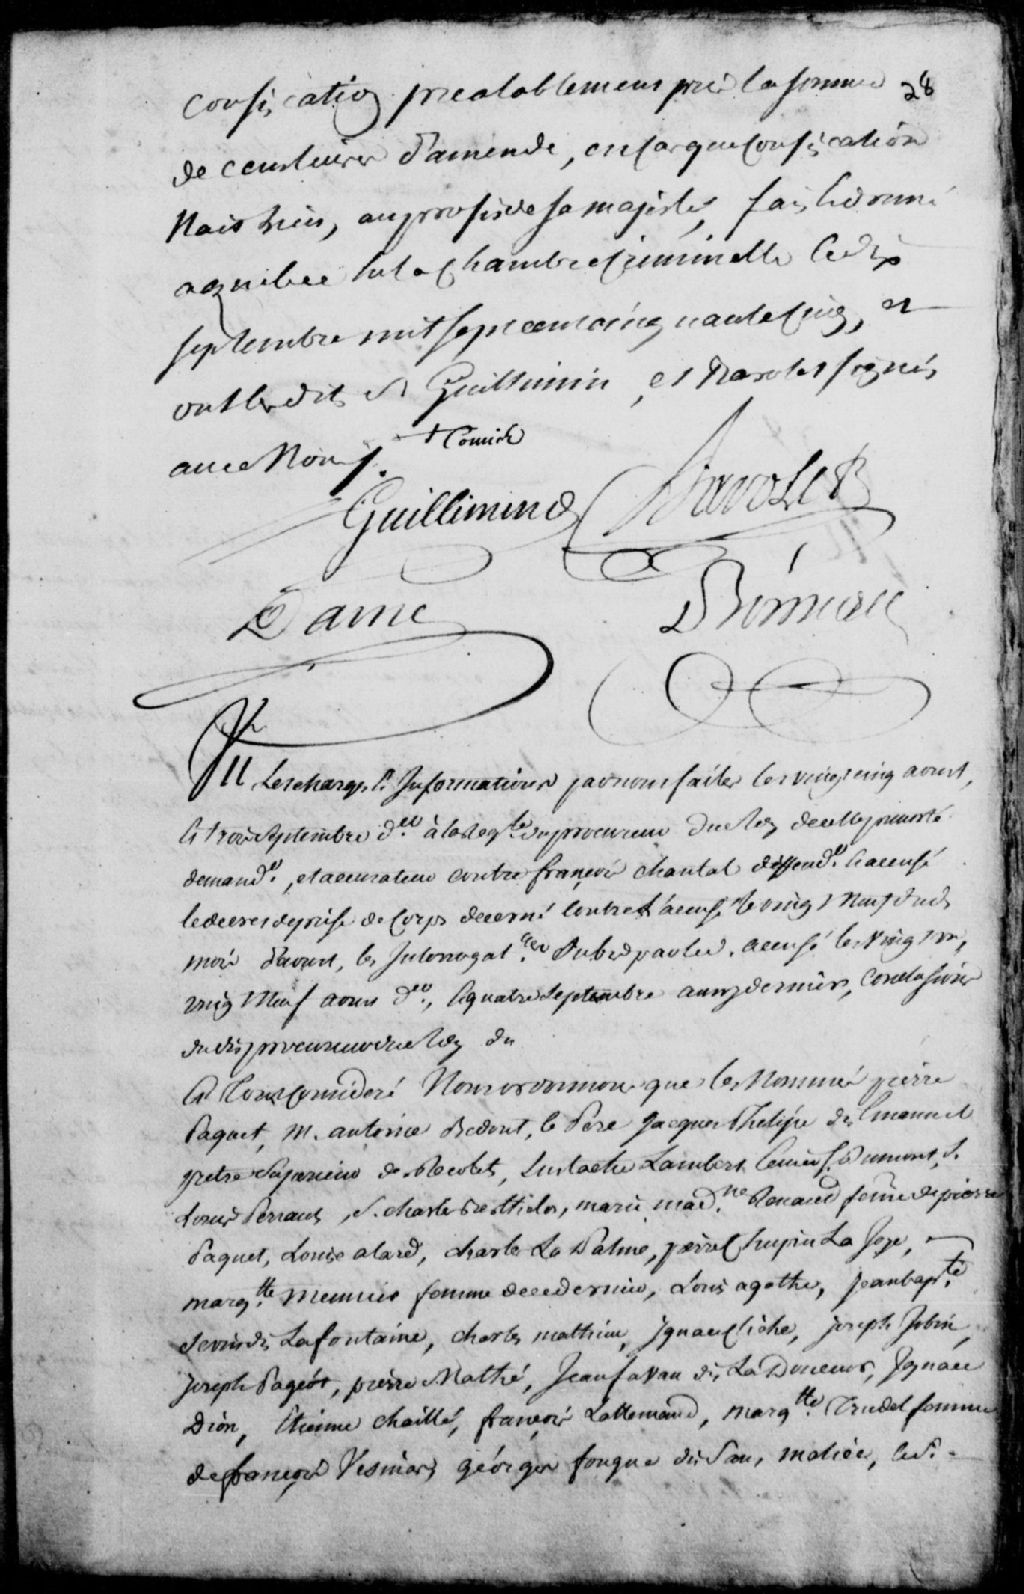 28
confiscation prealablement pris la somme
de cent livres d'amende, en cas que confiscation
n'ait lieu, au profit de sa majesté, fait et donné
a quebec en la chambre criminelle le dix
septembre mil sept cent cinquante cinq, et
ont lesdits Srs Guillimin, et Navolet signés
avec Nous.
+ Comick
Guillimin
Daine
Vu les charges et Informations par nous faites les vingt cinq aoust,
et trois septembre d.er à la req.te du procureur du Roy
demand.r, et accusateur contre françois chantal deffend.r et accusé
le decret de prise de Corps decerné Contre l'accusé le vingt neuf dud.
mois d'aoust, les Interrogat.res Subis par led. accusé les vingt
vingt Neuf aoust d.er, et quatre septembre aussy dernier, conclusions
dudit procureur du Roy du
Et Tout Consideré Nous ordonnons que les Nommé pierre
Paquet, M. antoine Bedout, le Pere Jacques Philipe dit Emanuel
pretre Superieur des Recolets, Eustache Lambert Dumont, S.
Louis Perrault, S. charles, marie mad.ne Renaud femme de pierre
Paquet, Louise alard, charles La Palme, pierre Chupin La Joye,
marg.tte Meunier femme de ce dernier, Louis agathe, Jean bap.te
dit Lafontaine, charles mathieu, Ignace Cliche, joseph Jobin,
joseph Pageot, pierre Mathé, Jean favan dit La Douceur, Ignace
Dion, Etienne chaillé, françois Lallemand, marg.tte Trudel femme
de françois Vesinat, géorges fouque